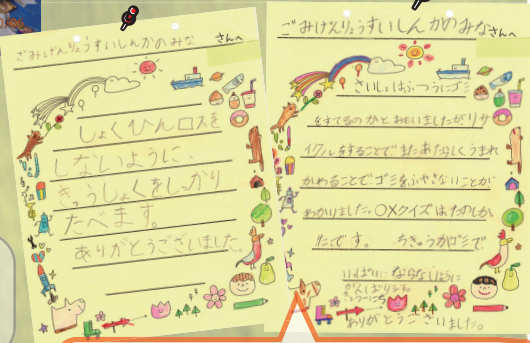 ごみげんりょうすいしんかのみな
さんへ
しょくひんロスを
しないように、
きゅうしょくをしっかり
たべます。
ありがとうございました。
ごみげんりょうすいしんかのみな
さんへ
さいしょはふつうにゴミ
をすてるのかとおもいましたがリサ
イクルをすることでまたあたらしくうまれ
かわることでゴミをふやさないことが
わかりました。〇Xクイズはたのしか
たです。ちきゅうがゴミで
いっぱいにならないように
がんばります。
ありがとうございました。